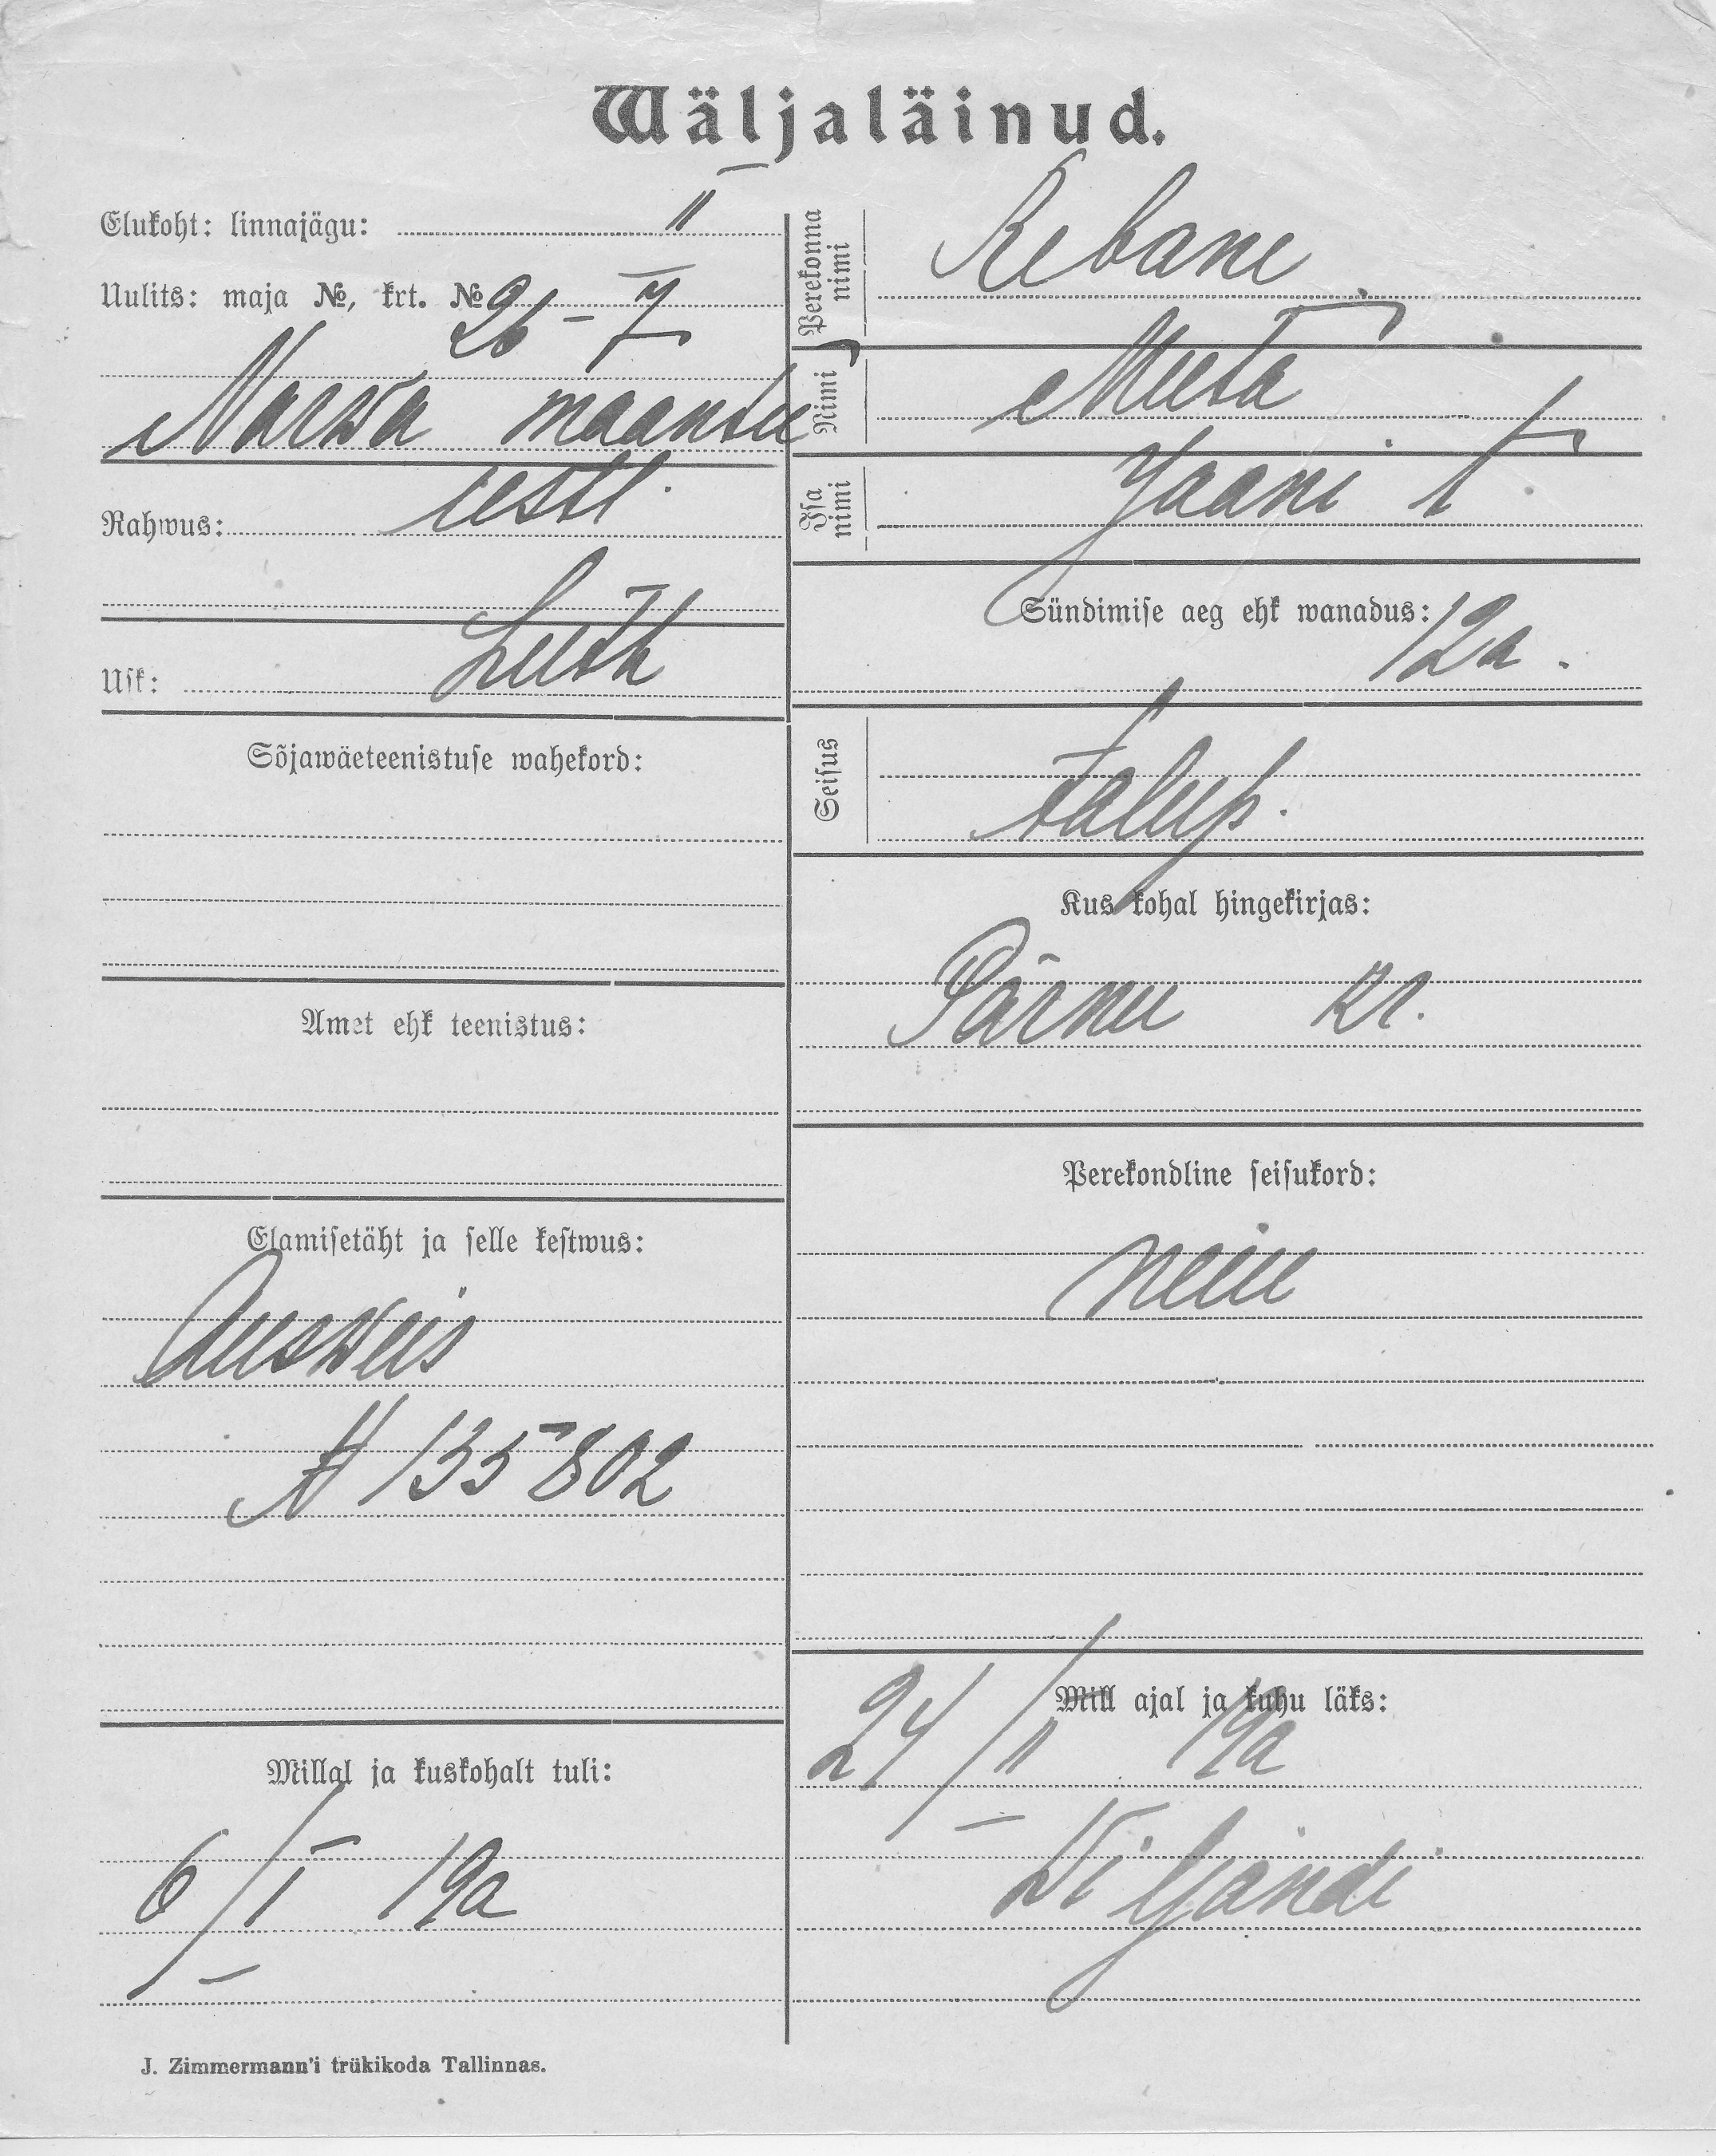 Wäljaläinud.
Elukoht: linnajägu: II
Uulits: maja №, krt. № 26 - 7
Narwa maantee
Rahwus: eesti
Usk: Luth
Sõjawäeteenistuse wahekord:
Amet ehk teenistus:
Elamisetäht ja selle kestwus:
Ausweis
A 135802
Millal ja kuskohalt tuli:
6/I 19a
Perekonna nimi Rebane
Nimi Meeta
Isa nimi Jaani t
Sündimise aeg ehk wanadus: 12a.
Seisus talup.
Kus kohal hingekirjas:
Pärnu kr.
Perekondline seisukord:
neiu
Mill ajal ja kuhu läks:
24/II 19a
Wiljandi
J. Zimmermann'i trükikoda Tallinnas.